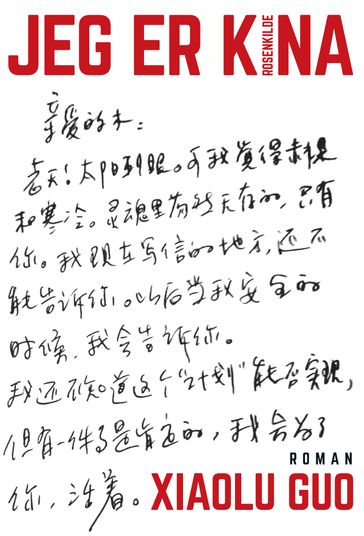 JEG ER KINA
ROSENKILDE
亲爱的木：
老天！太阳刺眼。可我觉得赤裸
和寒冷。灵魂里荡然无存的，只有
你。我现在写信的地方，还不
能告诉你。以后当我安全的
时候，我会告诉你。
我还不知道这个“计划”能否实现，
但有一件事是肯定的，我会为了
你，活着。
ROMAN
XIAOLU GUO